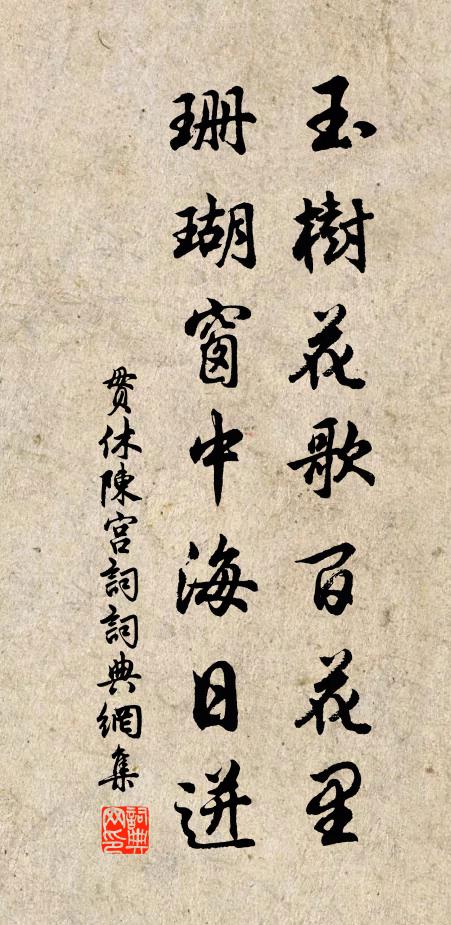 玉樹花歌百花里
珊瑚窗中海日迸
貫休陳宮詞詞典網集
詞典網印